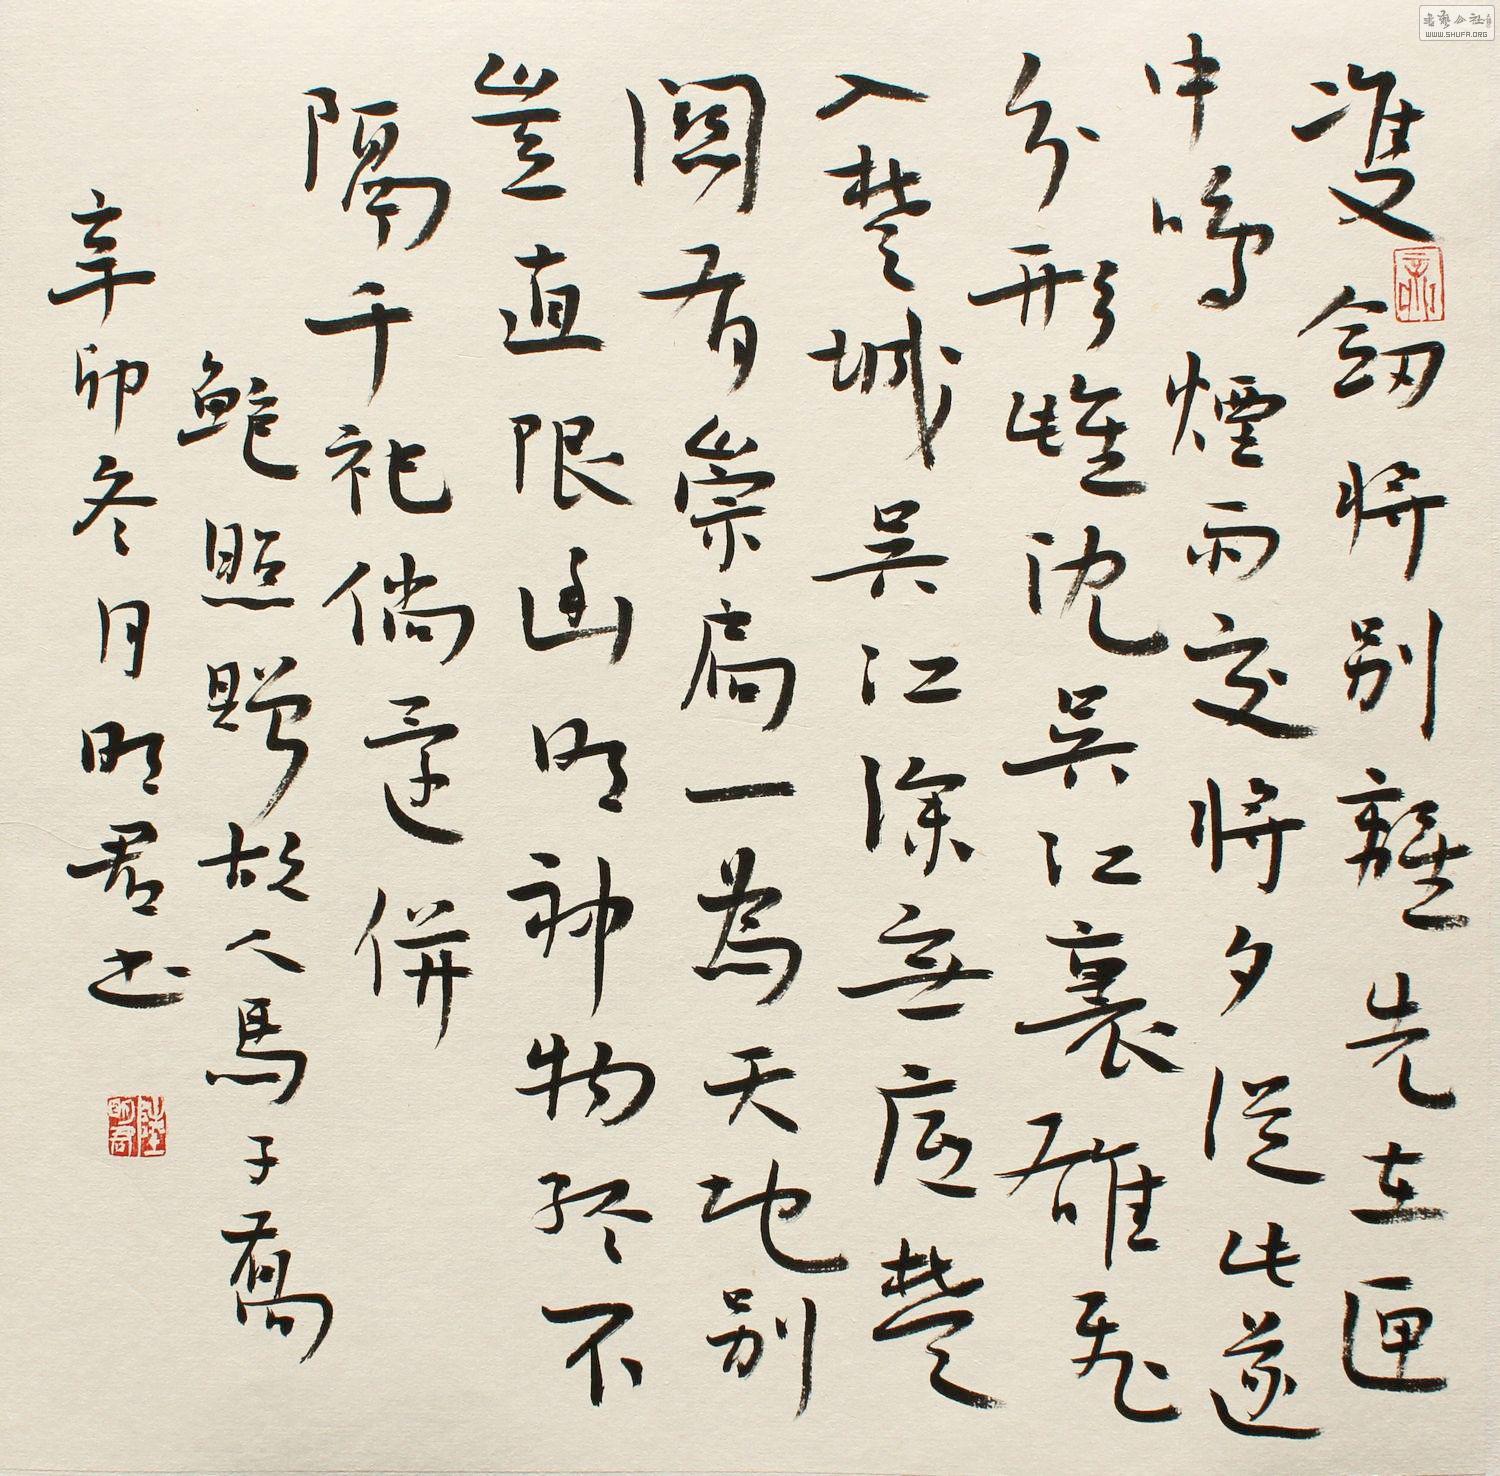 雙劒將別離先在匣
中鳴煙雨交將夕從此遂
分形雌沈吳江裏雄飛
入楚城吳江深無底楚
闕有崇扃一為天地別
豈直限幽明神物終不
隔千祀倘還併
鮑照贈故人馬子喬
辛卯冬月明君书
陸明君
WWW.SHUFA.ORG